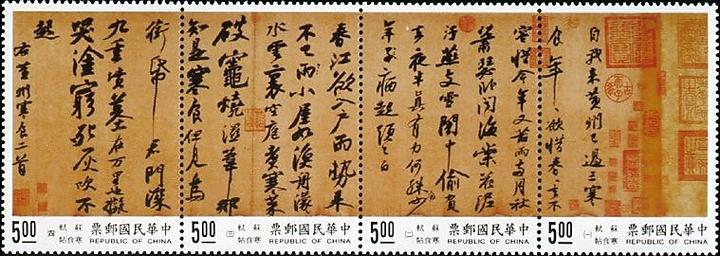 自我來黃州已過三寒
食年〻欲惜春〻去不
容惜今年又苦雨兩月秋
蕭瑟卧聞海棠花泥
汙燕支雪闇中偷負
去夜半真有力何殊病少
年子病起頭已白
春江欲入戶雨勢來
不已雨小屋如漁舟濛〻
水雲裏空庖煮寒菜
破竈燒溼葦那
知是寒食但見烏
銜帋君門深
九重墳墓在万里也擬
哭塗窮死灰吹不
起
右黃州寒食二首
票郵國民華中
REPUBLIC OF CHINA
蘇軾寒食帖(一)
5.00
票郵國民華中
REPUBLIC OF CHINA
蘇軾寒食帖(二)
5.00
票郵國民華中
REPUBLIC OF CHINA
蘇軾寒食帖(三)
5.00
票郵國民華中
REPUBLIC OF CHINA
蘇軾寒食帖(四)
5.00